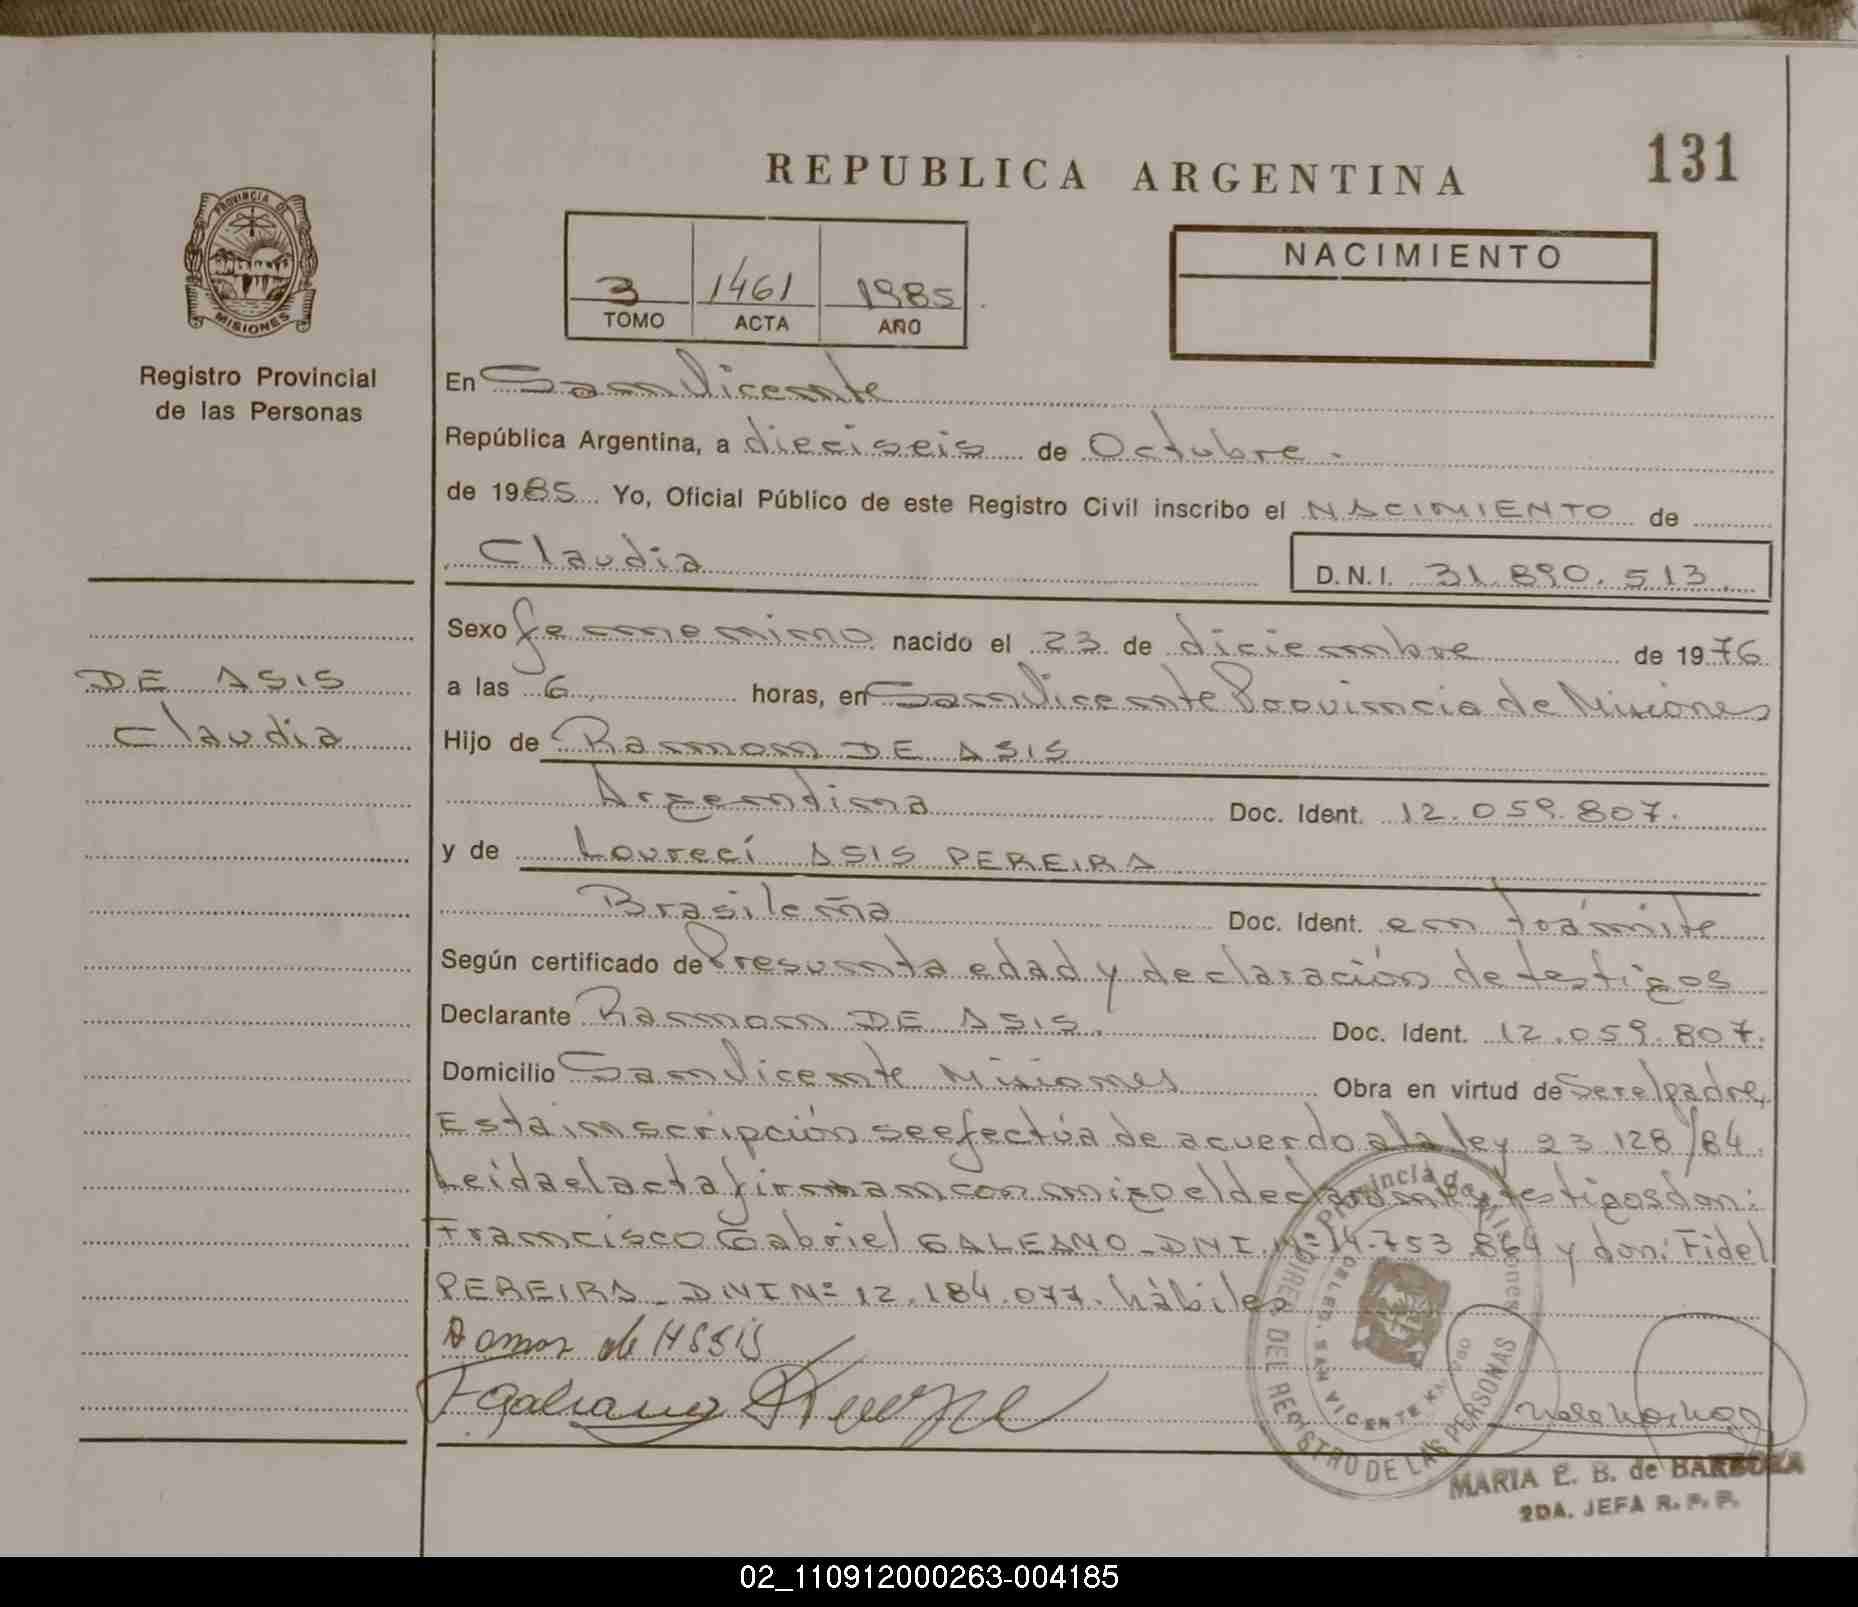 REPUBLICA ARGENTINA
131
PROVINCIA DE
MISIONES
Registro Provincial
de las Personas
3 1461 1985
TOMO ACTA AÑO
NACIMIENTO
En San Vicente
República Argentina, a dieciseis de Octubre.
de 1985 Yo, Oficial Público de este Registro Civil inscribo el NACIMIENTO de
Claudia D.N.I. 31.890.513.
DE ASIS
Claudia
Sexo femenino nacido el 23 de diciembre de 1976
a las 6 horas, en San Vicente Provincia de Misiones
Hijo de Ramon DE ASIS
Argentina Doc. Ident. 12.059.807.
y de Loureci ASIS PEREIRA
Brasileña Doc. Ident. en trámite
Según certificado de Presunta edad y declaración de testigos
Declarante Ramon DE ASIS. Doc. Ident. 12.059.807.
Domicilio San Vicente Misiones Obra en virtud de Ser el padre,
Esta inscripción se efectúa de acuerdo a la ley 23.128/84.
Leida el acta firman conmigo el declarante y testigos don:
Francisco Gabriel GALEANO - DNI Nº 14.753.864 y don: Fidel
PEREIRA - DNI Nº 12.184.077. hábiles
Provincia de Misiones
DIREC. DEL REGISTRO DE LAS PERSONAS
SAN VICENTE
MARIA E. B. de BARBOZA
2DA. JEFA R. P. P.
02_110912000263-004185